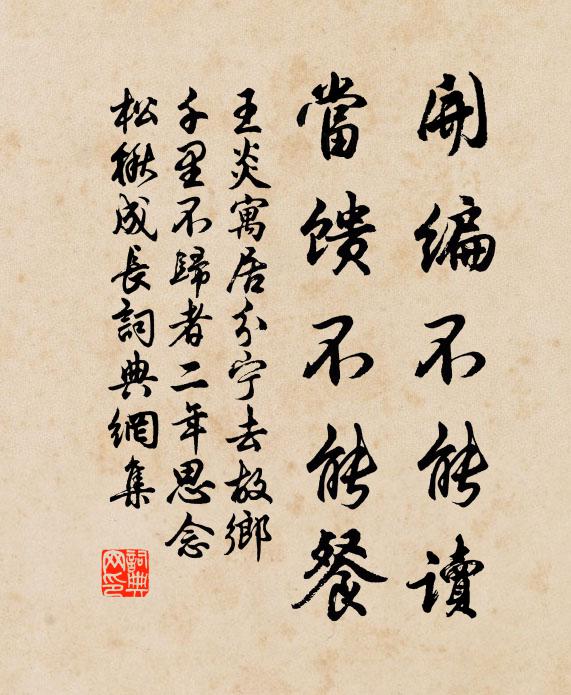 開編不能读
當馈不能餐
王炎寓居分宁去故鄉
千里不歸者二年思念
松楸成長詞典網集
詞典网印